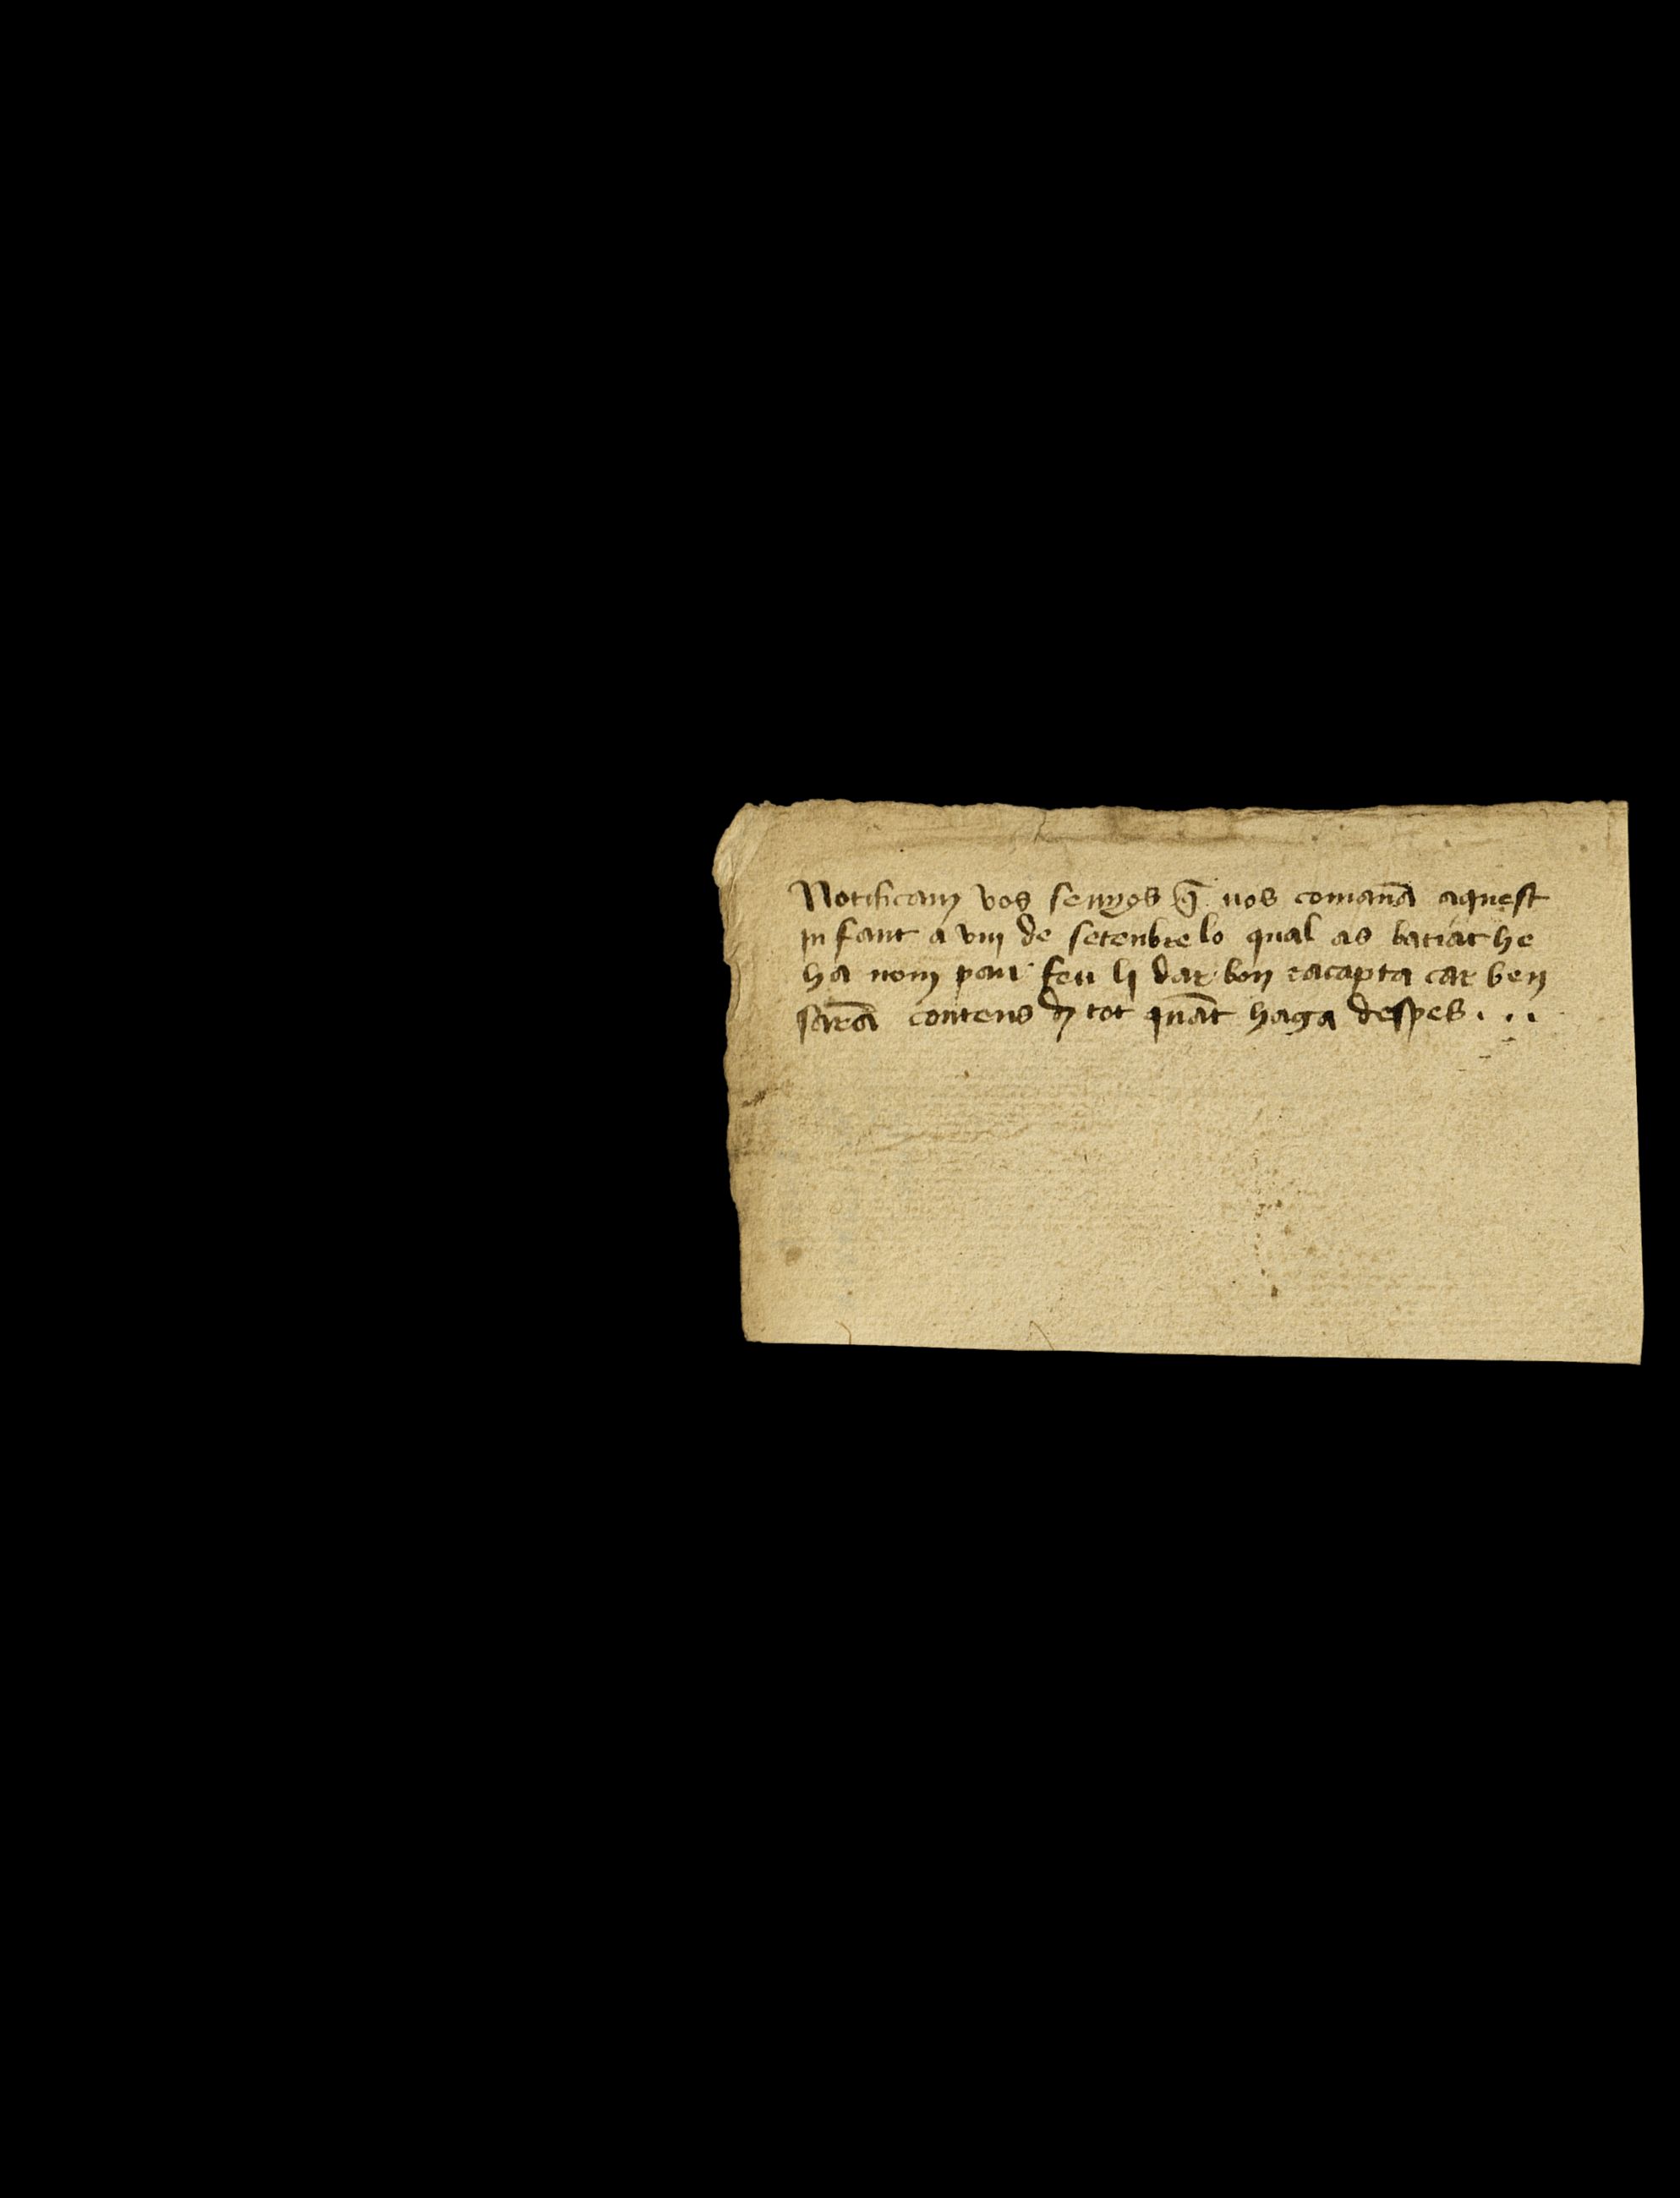 Notificam vos senyos q̄ nos comanā aquest
infant a viii de setenbre lo qual as batiat he
ha nom pau feu li dar bon racapta car ben
sarā contens d̄ tot quāt haga despes . . .